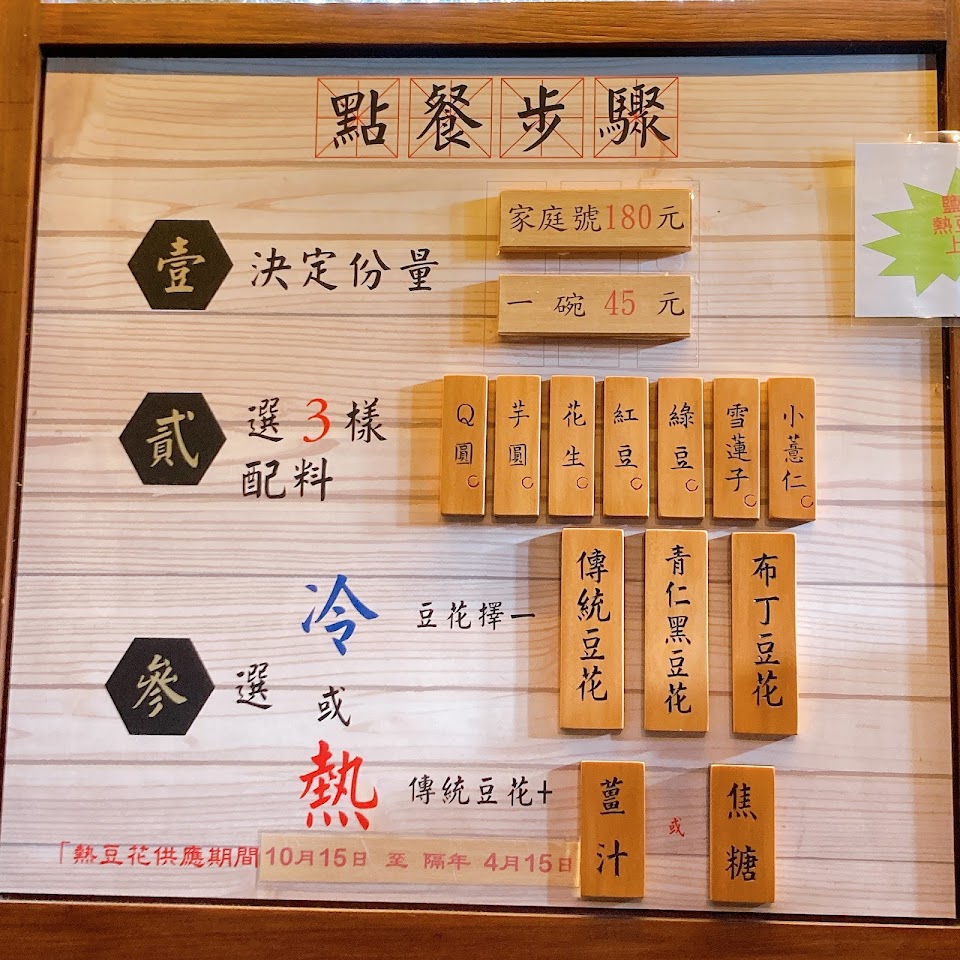 點餐步驟
壹 決定份量
家庭號180元
一碗45元
貳 選3樣
配料
Q圓
芋圓
花生
紅豆
綠豆
雪蓮子
小薏仁
參 選
冷 豆花擇一
傳統豆花
青仁黑豆花
布丁豆花
或
熱 傳統豆花+
薑汁
或
焦糖
「熱豆花供應期間10月15日 至 隔年 4月15日